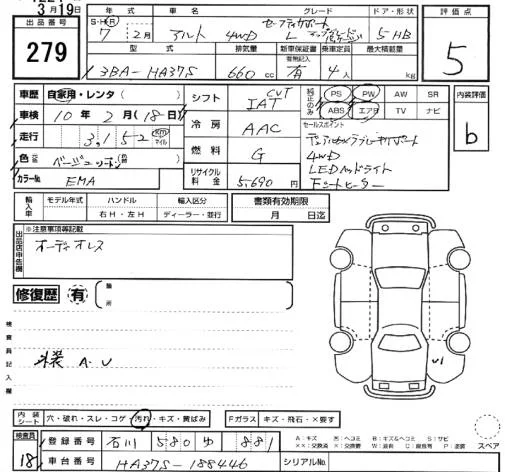 3月19日
出品番号 279
年式 車名 グレード ドア・形状
S・H・R 7年 2月 アルト 4WD L セーフティサポート アップグレードパッケージ 5HB
型式 排気量 新車保証書 乗車定員 最大積載量
有無記入
3BA-HA37S 660cc 有 4人 kg
評価点
5
内装評価
b
車歴 自家用・レンタ
車検 10年 2月(18日)
走行 3,152 Km マイル
色
カラーNo. EMA
シフト CVT IAT
冷房 AAC
燃料 G
リサイクル料金 5,690円
純正のみ PS PW AW SR
ABS エアB TV ナビ
セールスポイント
4WD
LEDヘッドライト
シートヒーター
輸入車 モデル年式 ハンドル 輸入区分
右H・左H ディーラー・並行
書類有効期限
月 日迄
出品店申告欄
※注意事項等記載
オーディオレス
修復歴 有 箇所
検査員記入欄
A・U
U1
内装シート 穴・破れ・スレ・コゲ・汚れ・キズ・黄ばみ
Fガラス キズ・飛石・×要す
検査員 18
登録番号 石川 580 ゆ 881
車台番号 HA37S-188446
シリアルNo.
A：キズ B：キズ&ヘコミ S：サビ
スペア